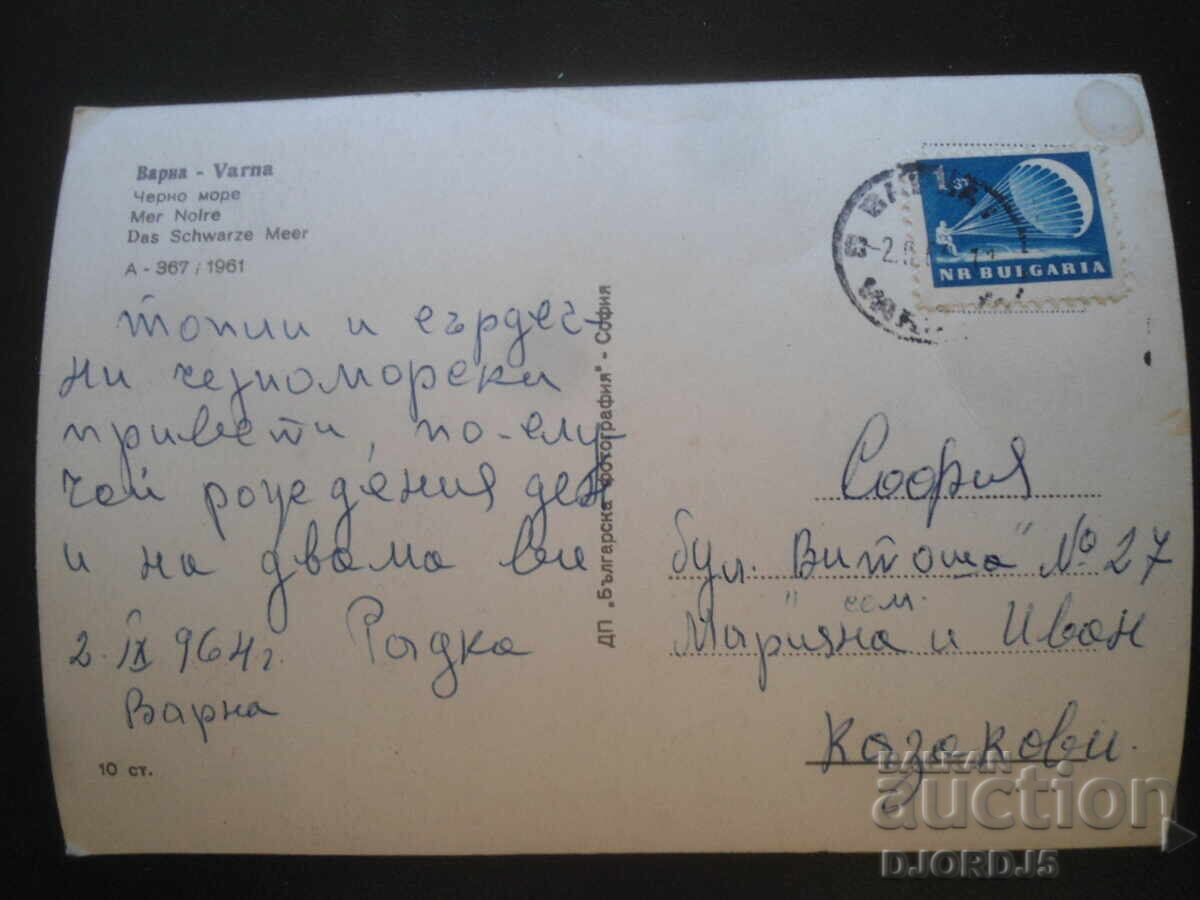 Варна - Varna
Черно море
Mer Noire
Das Schwarze Meer
А - 367 / 1961
топли и сърдеч-
ни черноморски
привети, по-слу-
чай рождения ден
и на двама ви
2. IX 964 г. Радка
Варна
10 ст.
ДП „Българска фотография" - София
1 СТ
NR BULGARIA
ВАРНА
София
бул. „Витоша" № 27
сем.
Марияна и Иван
Казакови.
BALKAN
auction
DJORDJ5